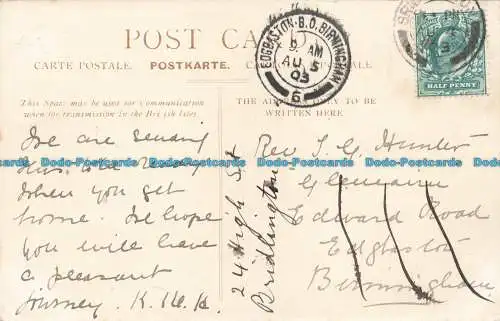 POST CARD
CARTE POSTALE. POSTKARTE.
This Space may be used for communication
when for transmission in the British Isles.
THE ADDRESS ONLY TO BE
WRITTEN HERE
EDGBASTON·B.O. BIRMINGHAM
9 AM
AU 5
03
6
HALF PENNY
We are sending
this
when you get
home. We hope
you will have
a pleasant
journey. K.
24 High St
Bridlington
Rev J. G. Hunter
Edward Road
Edgbaston
Birmingham
Dodo-Postcards Dodo-Postcards Dodo-Postcards Dodo-Postcards